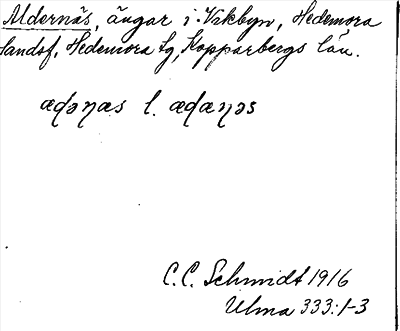 Aldernäs, ängar i Vikbyn, Hedemora
landsf, Hedemora tg, Kopparbergs län.
ædəɳæs l. ædæɳəs
C. C. Schmidt 1916
Ulma 333:1-3